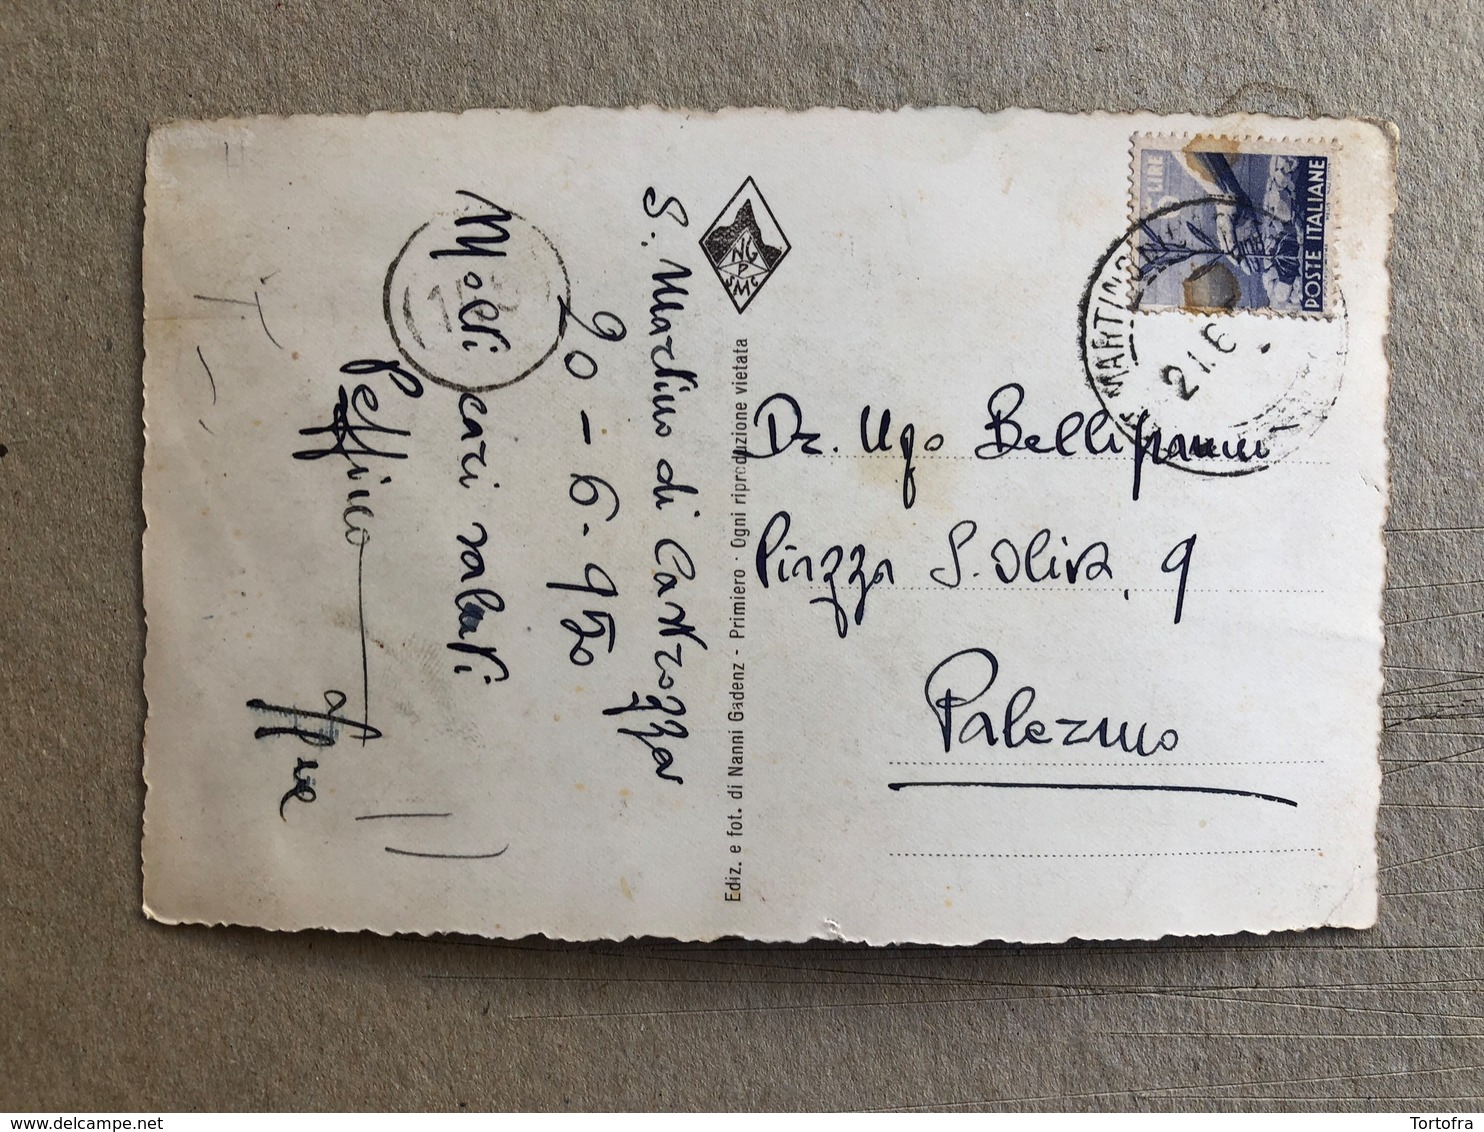 S. Martino di Castrozza
20-6-950
Molti cari saluti
Peffino
NG
P
SMC
Ediz. e fot. di Nanni Gadenz - Primiero - Ogni riproduzione vietata
LIRE
POSTE ITALIANE
MARTINO
21.6
Dr. Ugo
Piazza S. Oliva, 9
Palermo
Tortofra